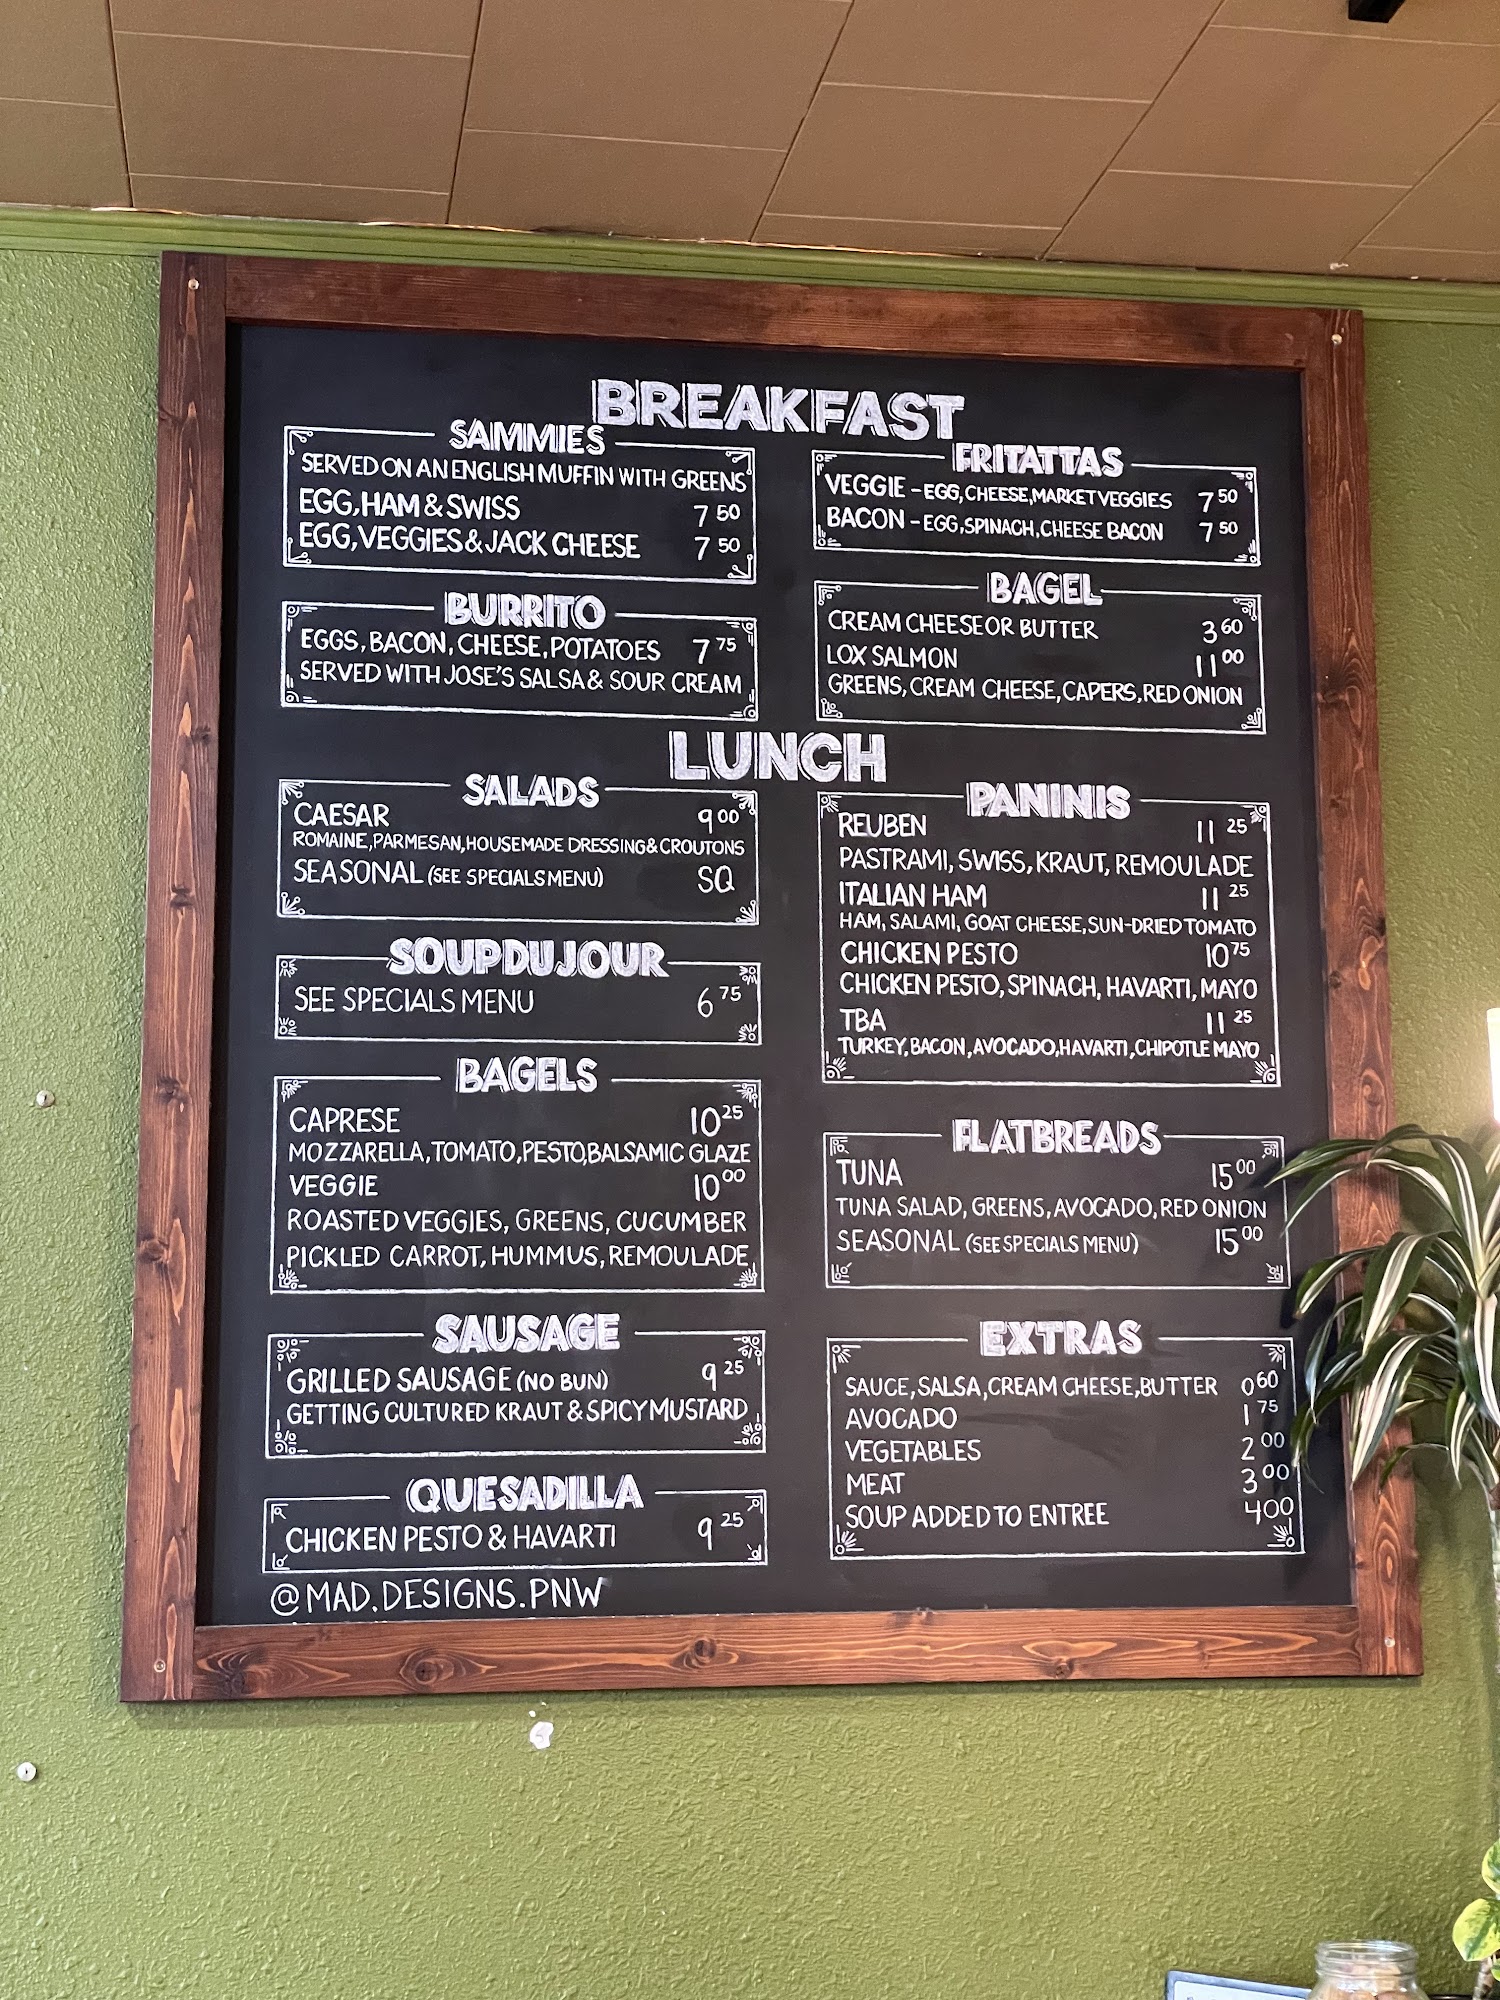 BREAKFAST
SAMMIES
SERVED ON AN ENGLISH MUFFIN WITH GREENS
EGG, HAM & SWISS 7 50
EGG, VEGGIES & JACK CHEESE 7 50
BURRITO
EGGS, BACON, CHEESE, POTATOES 7 75
SERVED WITH JOSE'S SALSA & SOUR CREAM
FRITATTAS
VEGGIE - EGG, CHEESE, MARKET VEGGIES 7 50
BACON - EGG, SPINACH, CHEESE BACON 7 50
BAGEL
CREAM CHEESE OR BUTTER 3 60
LOX SALMON 11 00
GREENS, CREAM CHEESE, CAPERS, RED ONION
LUNCH
SALADS
CAESAR 9 00
ROMAINE, PARMESAN, HOUSEMADE DRESSING & CROUTONS
SEASONAL (SEE SPECIALS MENU) SQ
SOUP DU JOUR
SEE SPECIALS MENU 6 75
BAGELS
CAPRESE 10 25
MOZZARELLA, TOMATO, PESTO, BALSAMIC GLAZE
VEGGIE 10 00
ROASTED VEGGIES, GREENS, CUCUMBER
PICKLED CARROT, HUMMUS, REMOULADE
SAUSAGE
GRILLED SAUSAGE (NO BUN) 9 25
GETTING CULTURED KRAUT & SPICY MUSTARD
QUESADILLA
CHICKEN PESTO & HAVARTI 9 25
@MAD.DESIGNS.PNW
PANINIS
REUBEN 11 25
PASTRAMI, SWISS, KRAUT, REMOULADE
ITALIAN HAM 11 25
HAM, SALAMI, GOAT CHEESE, SUN-DRIED TOMATO
CHICKEN PESTO 10 75
CHICKEN PESTO, SPINACH, HAVARTI, MAYO
TBA 11 25
TURKEY, BACON, AVOCADO, HAVARTI, CHIPOTLE MAYO
FLATBREADS
TUNA 15 00
TUNA SALAD, GREENS, AVOCADO, RED ONION
SEASONAL (SEE SPECIALS MENU) 15 00
EXTRAS
SAUCE, SALSA, CREAM CHEESE, BUTTER 0 60
AVOCADO 1 75
VEGETABLES 2 00
MEAT 3 00
SOUP ADDED TO ENTREE 4 00